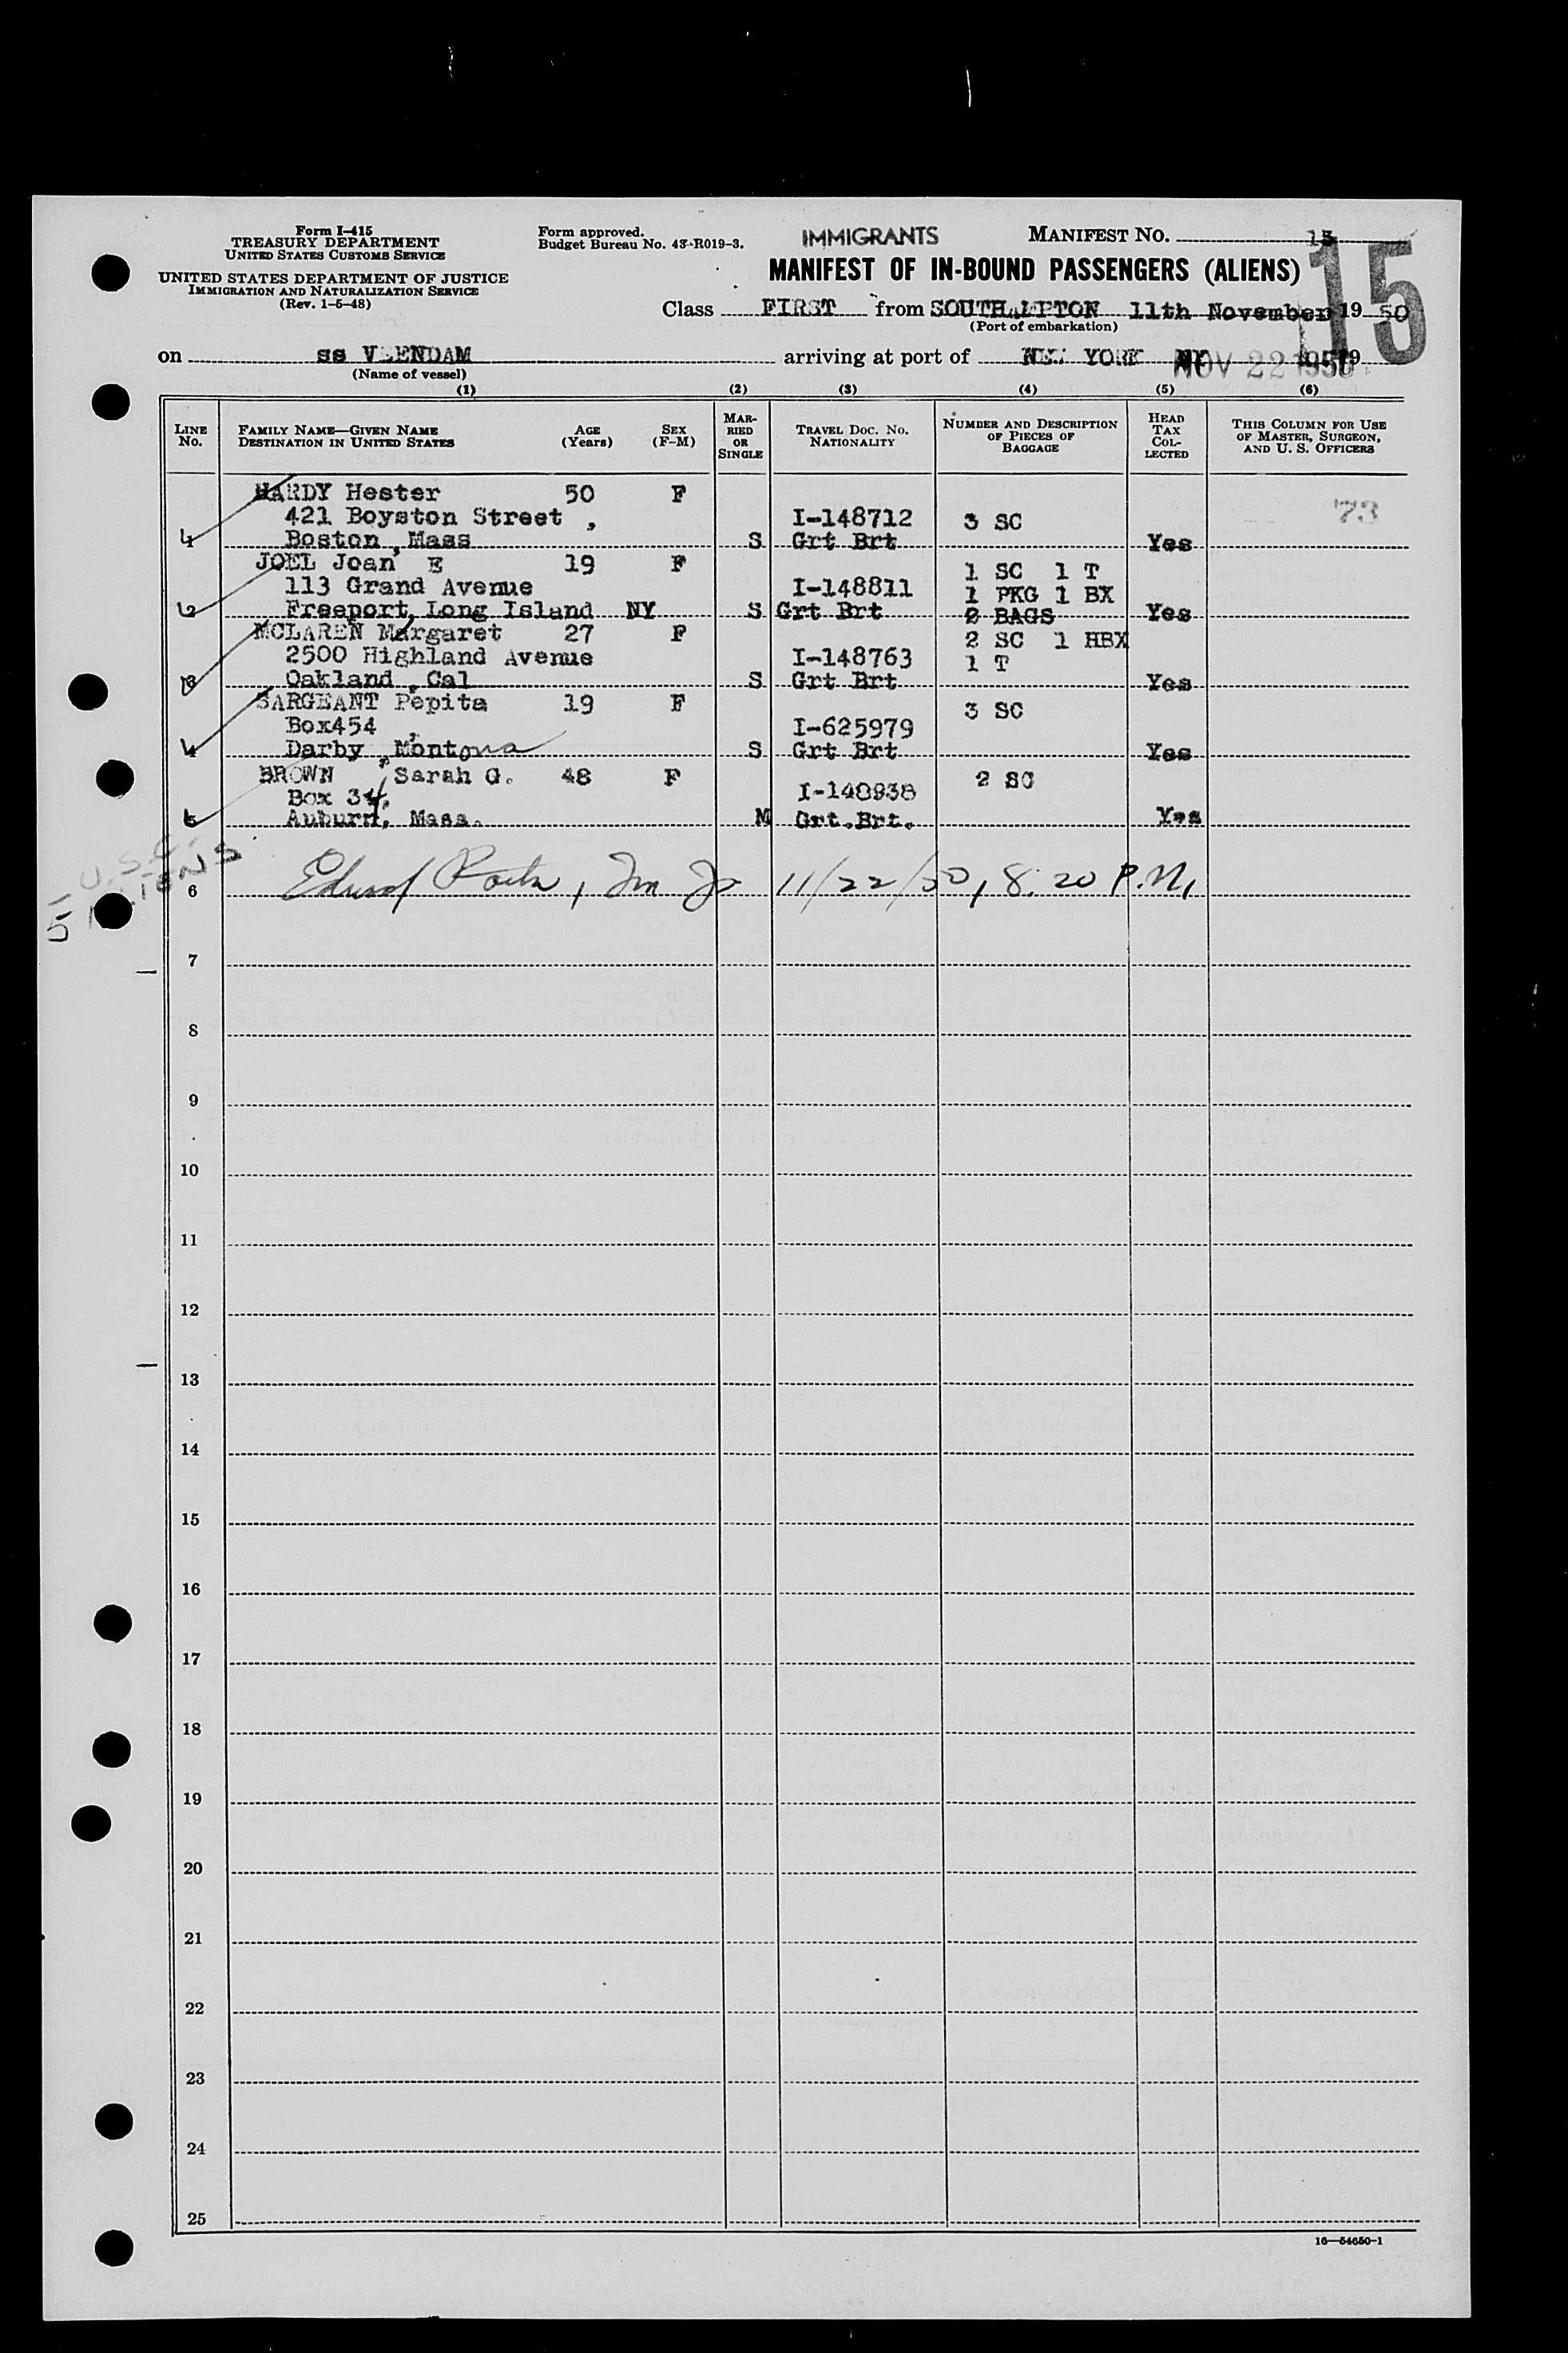 Form I-415
TREASURY DEPARTMENT
UNITED STATES CUSTOMS SERVICE
UNITED STATES DEPARTMENT OF JUSTICE
IMMIGRATION AND NATURALIZATION SERVICE
(Rev. 1-5-48)
Form approved.
Budget Bureau No. 43-R019-3.
IMMIGRANTS
MANIFEST NO. 15
15
MANIFEST OF IN-BOUND PASSENGERS (ALIENS)
Class FIRST from SOUTHAMPTON 11th November 19 50
(Port of embarkation)
on ss VEENDAM arriving at port of NEW YORK NY NOV 22 1950 19
(Name of vessel)
(1) (2) (3) (4) (5) (6)
LINE NO. FAMILY NAME—GIVEN NAME DESTINATION IN UNITED STATES AGE (Years) SEX (F-M) MARRIED OR SINGLE TRAVEL DOC. NO. NATIONALITY NUMBER AND DESCRIPTION OF PIECES OF BAGGAGE HEAD TAX COLLECTED THIS COLUMN FOR USE OF MASTER, SURGEON, AND U. S. OFFICERS
HARDY Hester 50 F
421 Boyston Street , I-148712 3 SC 73
1 Boston , Mass S Grt Brt Yes
JOEL Joan E 19 F 1 SC 1 T
113 Grand Avenue I-148811 1 PKG 1 BX
2 Freeport, Long Island NY S Grt Brt 2 BAGS Yes
MCLAREN Margaret 27 F 2 SC 1 HBX
2500 Highland Avenue I-148763 1 T
3 Oakland , Cal S Grt Brt Yes
SARGEANT Pepita 19 F 3 SC
Box454 , I-625979
4 Darby , Montana S Grt Brt Yes
BROWN , Sarah G. 48 F 2 SC
Box 34, I-148938
5 Auburn, Mass. M Grt.Brt. Yes
6 11/22/50, 8:20 P.M.
7
8
9
10
11
12
13
14
15
16
17
18
19
20
21
22
23
24
25
16—54650-1